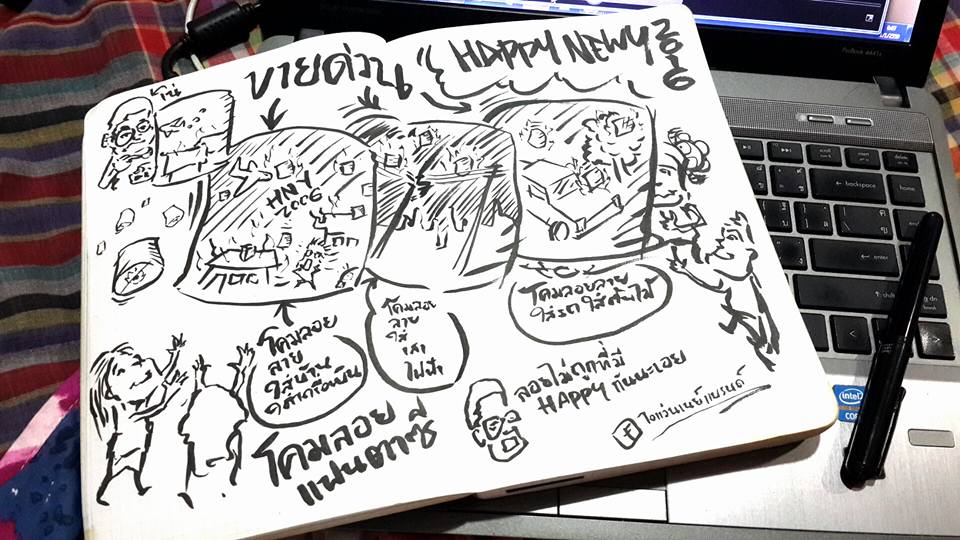 ขายด่วน
HAPPY NEWY
2016
โน่
HNY
2006
โคมลอย
ลาย
ใส่บ้าน
ใส่เครื่องบิน
โคมลอย
ลาย
ใส่
เสา
ไฟฟ้า
โคมลอยลาย
ใส่รถ ใส่ต้นไม้
โคมลอย
แฟนตาซี
ลอยไม่ถูกที่มี
HAPPY กันนะเอย
f ไอแว่นเนย์แบรนด์
ProBook 4441s
backspace
home
delete
enter
shift
end
intel
CORE